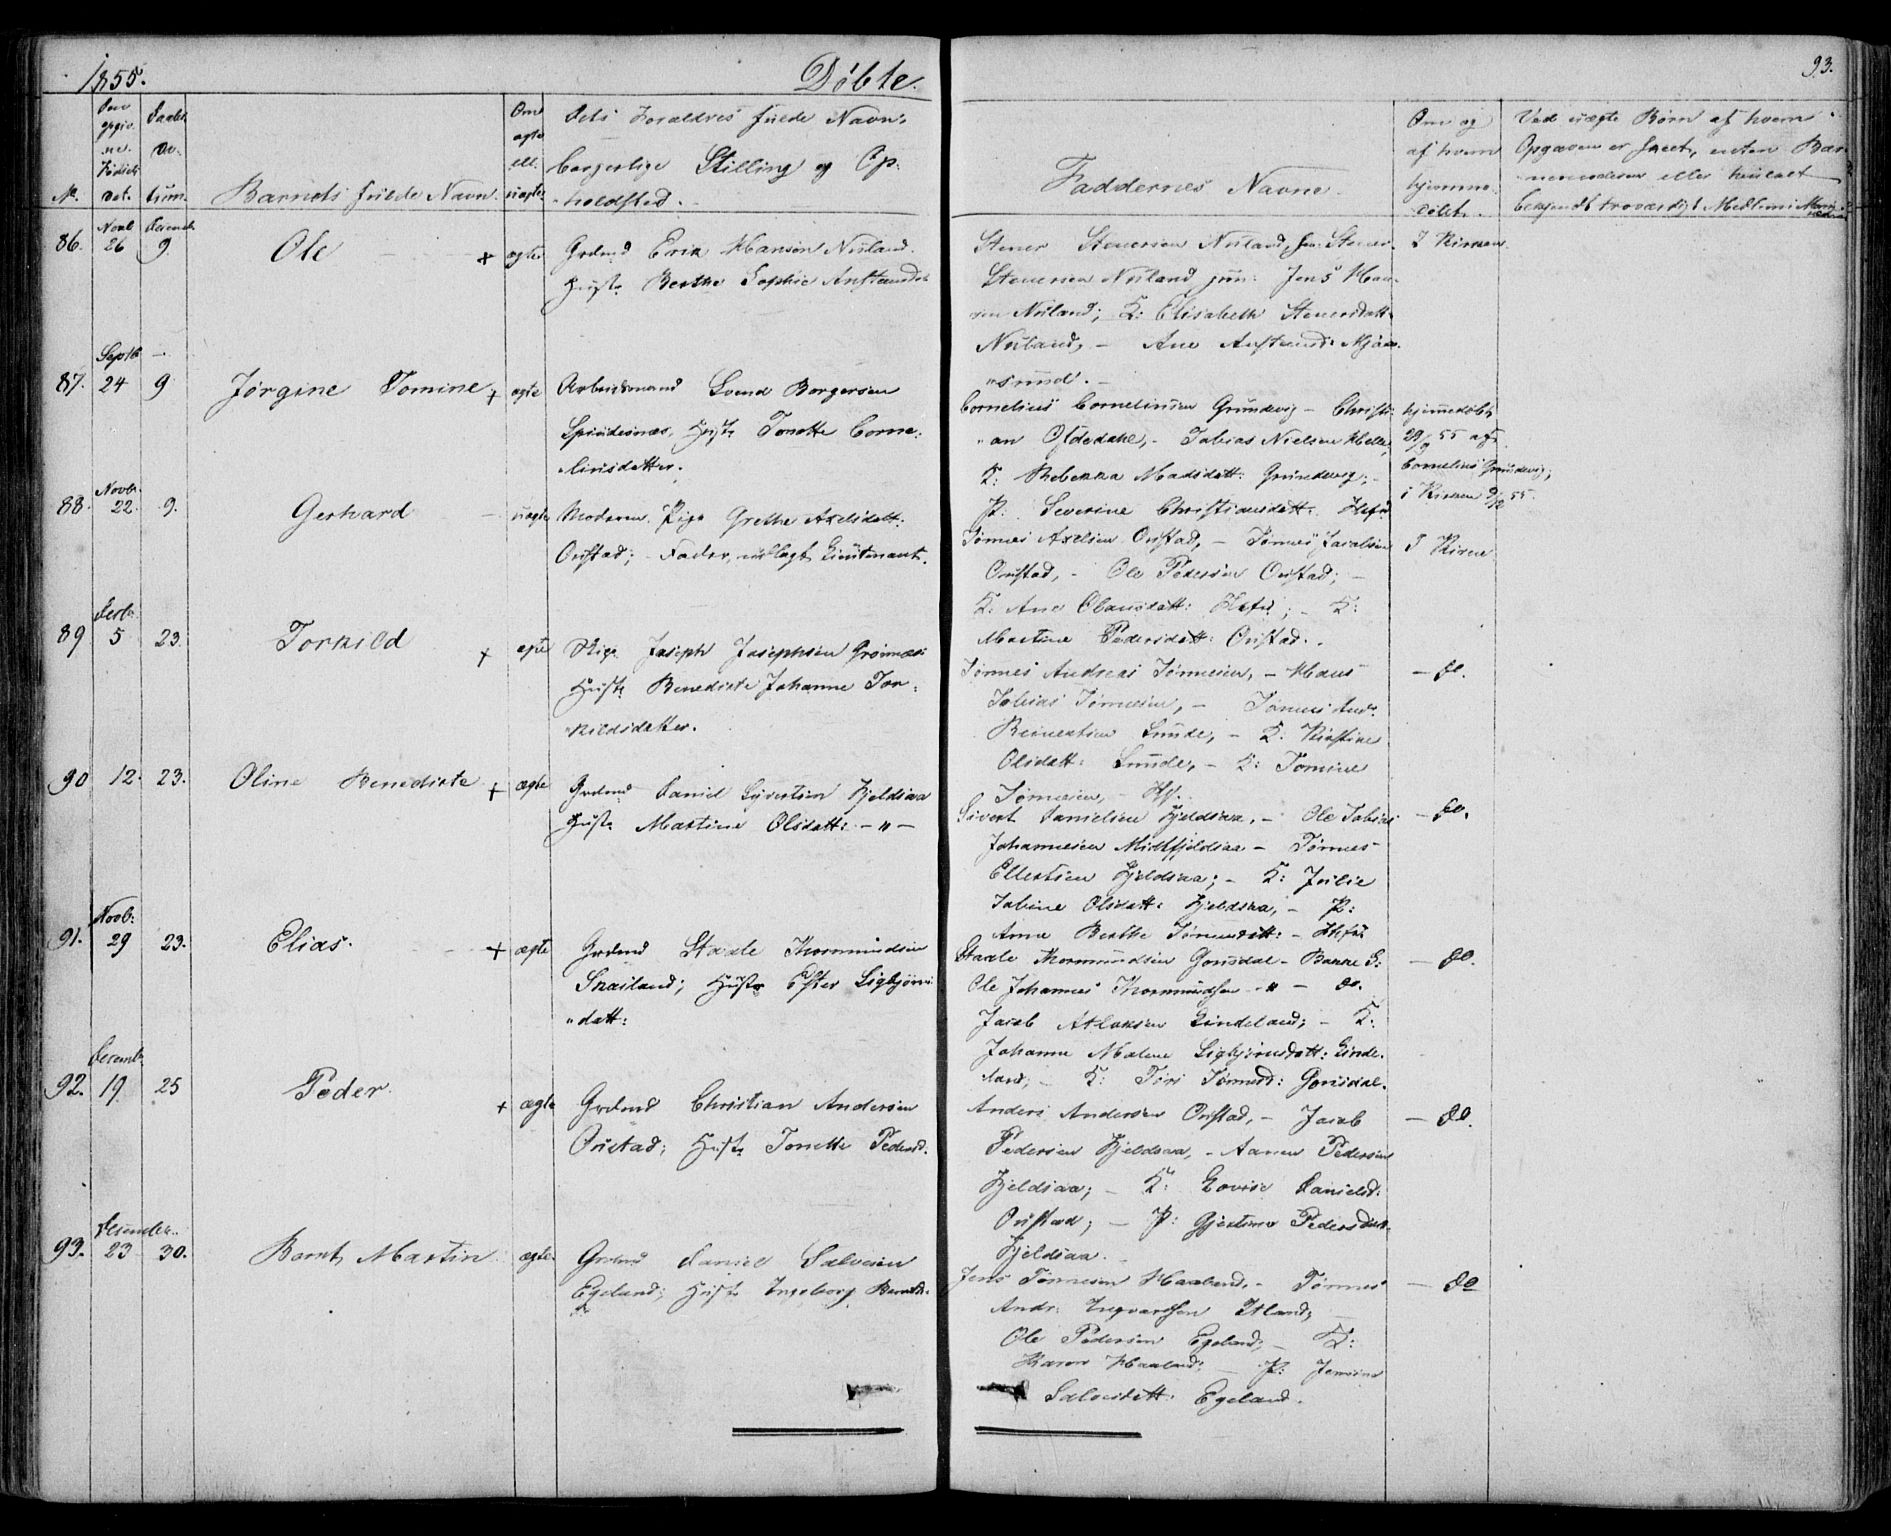 1855.
Døbte.
93.
No.
Barnets fulde Navn.
Om ægte ell. uægte.
Dets Forældres fulde Navn,
borgerlige Stilling og Op-
holdsted.
Faddernes Navne.
Om og
af hvem
hjemme-
døbt.
Ved uægte Børn af hvem
Opgaven er skeet, enten Bar-
nemoderen eller huuset
bekjendt troværdigt Medlem i
86. Novb 26 Decemb. 9. Ole + ægte
Grdmd Erik Hansen Nuland.
Hust. Berthe Sophie
Stener Stenersen Nuland, sen: Stener
Stenersen Nuland jun: Jens Han-
sen Nuland; K: Elisabeth Stenersdatt:
Nuland, - Ane
sund. -
I Kirken.
87. Septb 24 9 Jørgine Tomine + ægte
Arbeidsmand Svend Borgersen
Spindesnæs, Hust. Tonette Corne-
liusdatter.
Cornelius Corneliussen Grundevig - Christi-
an Oldedahl, - Tobias Nielsen Helle,
K: Rebekka Madsdatt: Grundevig; -
P: Severine Christiansdatt:
hjemmedøbt
29/9 55 af
Cornelius Grundevig;
i Kirken 9/12 55.
88. Novb. 22. 9. Gerhard uægte
Moderen Pige Grethe Axelsdatt:
Oustad; - Fader, udlagt Lieutenant.
Tønnes Axelsen Oustad, - Tønnes Jacobsen
Oustad, - Ole Pedersen Oustad; -
K: Ane Olausdatt: ; - K:
Martine Pedersdatt: Oustad.
I Kirken
89 Decbr 5 23. Torkild + ægte
Joseph Josephsen Grøsnæs
Hust. Benedikte Johanne Tor-
kildsdatter.
Tønnes Andreas Tønnesen, - Hans
Tobias Tønnesen, - Tønnes And.
Reinertsen Lunde, - K: Kirstine
Olsdatt: Lunde, - K: Tomine
Tønnesen, -
- do.
90 12. 23. Oline Benedikte + ægte
Grdmd Daniel Sivertsen Fjeldsaa
Hust. Martine Olsdatt: - " -
Sivert Danielsen Fjeldsaa, - Ole Tobias
Johannesen Midtfjeldsaa - Tønnes
Ellertsen Fjeldsaa; - K: Julie
Tobine Olsdatt: Fjeldsaa, - P:
Anne Berthe Tønnesdatt: -
- do.
91. Novb: 29 23. Elias. + ægte
Grdmd Staale Thormundsen
Skailand; Hustr Ester Sigbjørns-
datt:
Staale Thormundsen Gousdal - Bakke S:
Ole Johannes Thormundsen - " - do.
Jacob Atlaksen Lindeland; - K:
Johanne Malene Sigbjørnsdatt: Linde-
land; - K: Tønnesd: Gousdal.
- do.
92. Decemb. 19 25 Peder. + ægte
Grdmd Christian Andersen
Oustad; Hust. Tonette Pedersd.
Anders Andersen Oustad, - Jacob
Pedersen Fjeldsaa, - Aanen Pedersen
Fjeldsaa; - K: Lovise Danielsd:
Oustad; - P: Gjertine Pedersdatt.
Fjeldsaa. -
- do.
93. December. 23 30. Bernt Martin ægte.
Grdmd Daniel Salvesen
Egeland; Hust. Ingeborg
Jens Tønnesen Haaland, - Tønnes
Andr: Ingvardsen Itland;
Ole Pedersen Egeland, - K:
Karen Haaland: - P: Jensine
Salvesdatt. Egeland.
- do